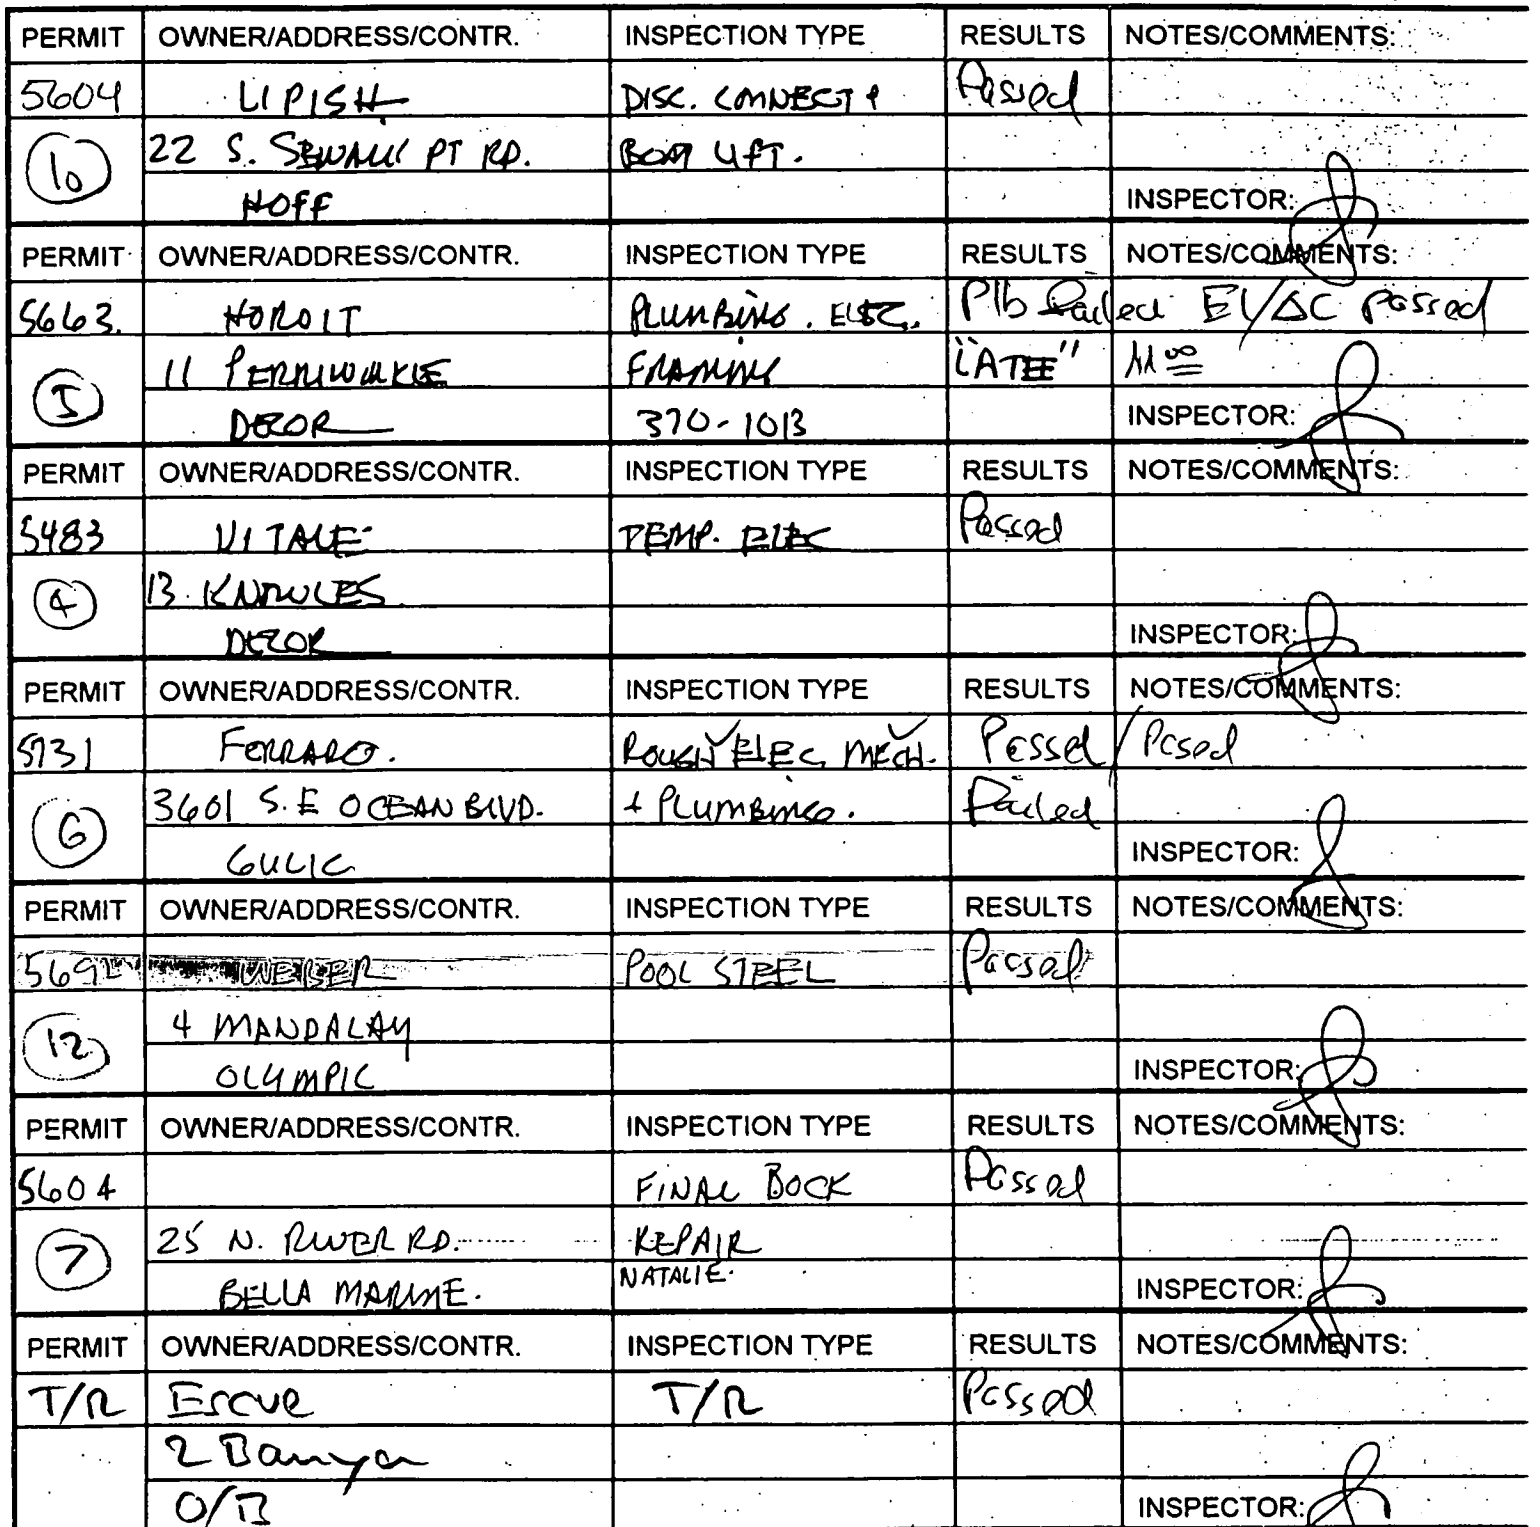 PERMIT OWNER/ADDRESS/CONTR. INSPECTION TYPE RESULTS NOTES/COMMENTS:
5604 LIPISH DISC. CONNECT & Passed
22 S. SEWALL PT RD. BOAT LIFT.
10
HOFF INSPECTOR:
PERMIT OWNER/ADDRESS/CONTR. INSPECTION TYPE RESULTS NOTES/COMMENTS:
5663. PLUMBING. ELEC. Plb Failed El/AC passed
11 PERRIWINKLE FRAMING "LATE" 11 00
5
DEZOR 370-1013 INSPECTOR:
PERMIT OWNER/ADDRESS/CONTR. INSPECTION TYPE RESULTS NOTES/COMMENTS:
5483 VITALE TEMP. ELEC Passed
13 KNOWLES
4
DEZOR INSPECTOR:
PERMIT OWNER/ADDRESS/CONTR. INSPECTION TYPE RESULTS NOTES/COMMENTS:
5731 FERRARO. ROUGH ELEC MECH. Passed / Passed
3601 S.E OCEAN BLVD. + PLUMBING. Failed
6
GULIC INSPECTOR:
PERMIT OWNER/ADDRESS/CONTR. INSPECTION TYPE RESULTS NOTES/COMMENTS:
5692 WEBER POOL STEEL Passed
4 MANDALAY
12
OLYMPIC INSPECTOR:
PERMIT OWNER/ADDRESS/CONTR. INSPECTION TYPE RESULTS NOTES/COMMENTS:
5604 FINAL DOCK Passed
25 N. RIVER RD. REPAIR
7
BELLA MARINE. NATALIE. INSPECTOR:
PERMIT OWNER/ADDRESS/CONTR. INSPECTION TYPE RESULTS NOTES/COMMENTS:
T/R Escue T/R Passed
2 Banyan
O/B INSPECTOR: